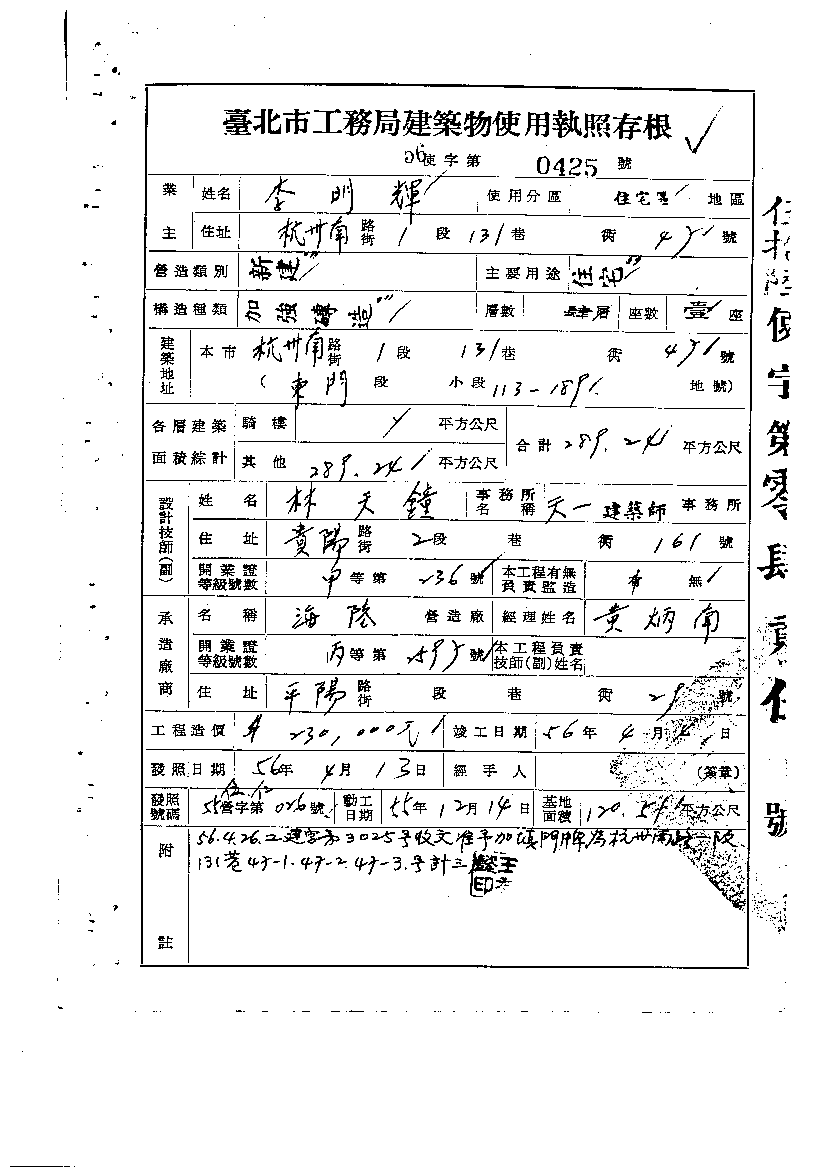 臺北市工務局建築物使用執照存根
56使字第 0425 號
業主 姓名 李明輝 使用分區 住宅區 地區
住址 杭州南路街 1 段 131 巷 衖 號
營造類別 新建 主要用途 住宅
構造種類 加強磚造 層數 肆層 座數 壹座
建築地址 本市 杭州南路街 1 段 131 巷 衖 號
(東門 段 小段 113-189 地號)
各層建築面積綜計 騎樓 平方公尺 合計 289.24 平方公尺
其他 289.24 平方公尺
設計技師(副) 姓名 林天鐘 事務所名稱 天一建築師 事務所
住址 貴陽路街 2 段 巷 衖 161 號
開業證等級號數 甲等第 236 號 本工程有無負責監造 有 無
承造廠商 名稱 海陸 營造廠 經理姓名 黃炳南
開業證等級號數 丙等第 號 本工程負責技師(副)姓名
住址 平陽路街 段 巷 衖 號
工程造價 230,000元 竣工日期 56年 4月 日
發照日期 56年 4月 13日 經手人 (簽章)
發照號碼 55營字第 026 號 動工日期 55年 12月 14日 基地面積 平方公尺
附註 56.4.26.工建字第3025号收文准予加填門牌為杭州南路一段
131巷
伍拾陸使字第零肆貳伍號